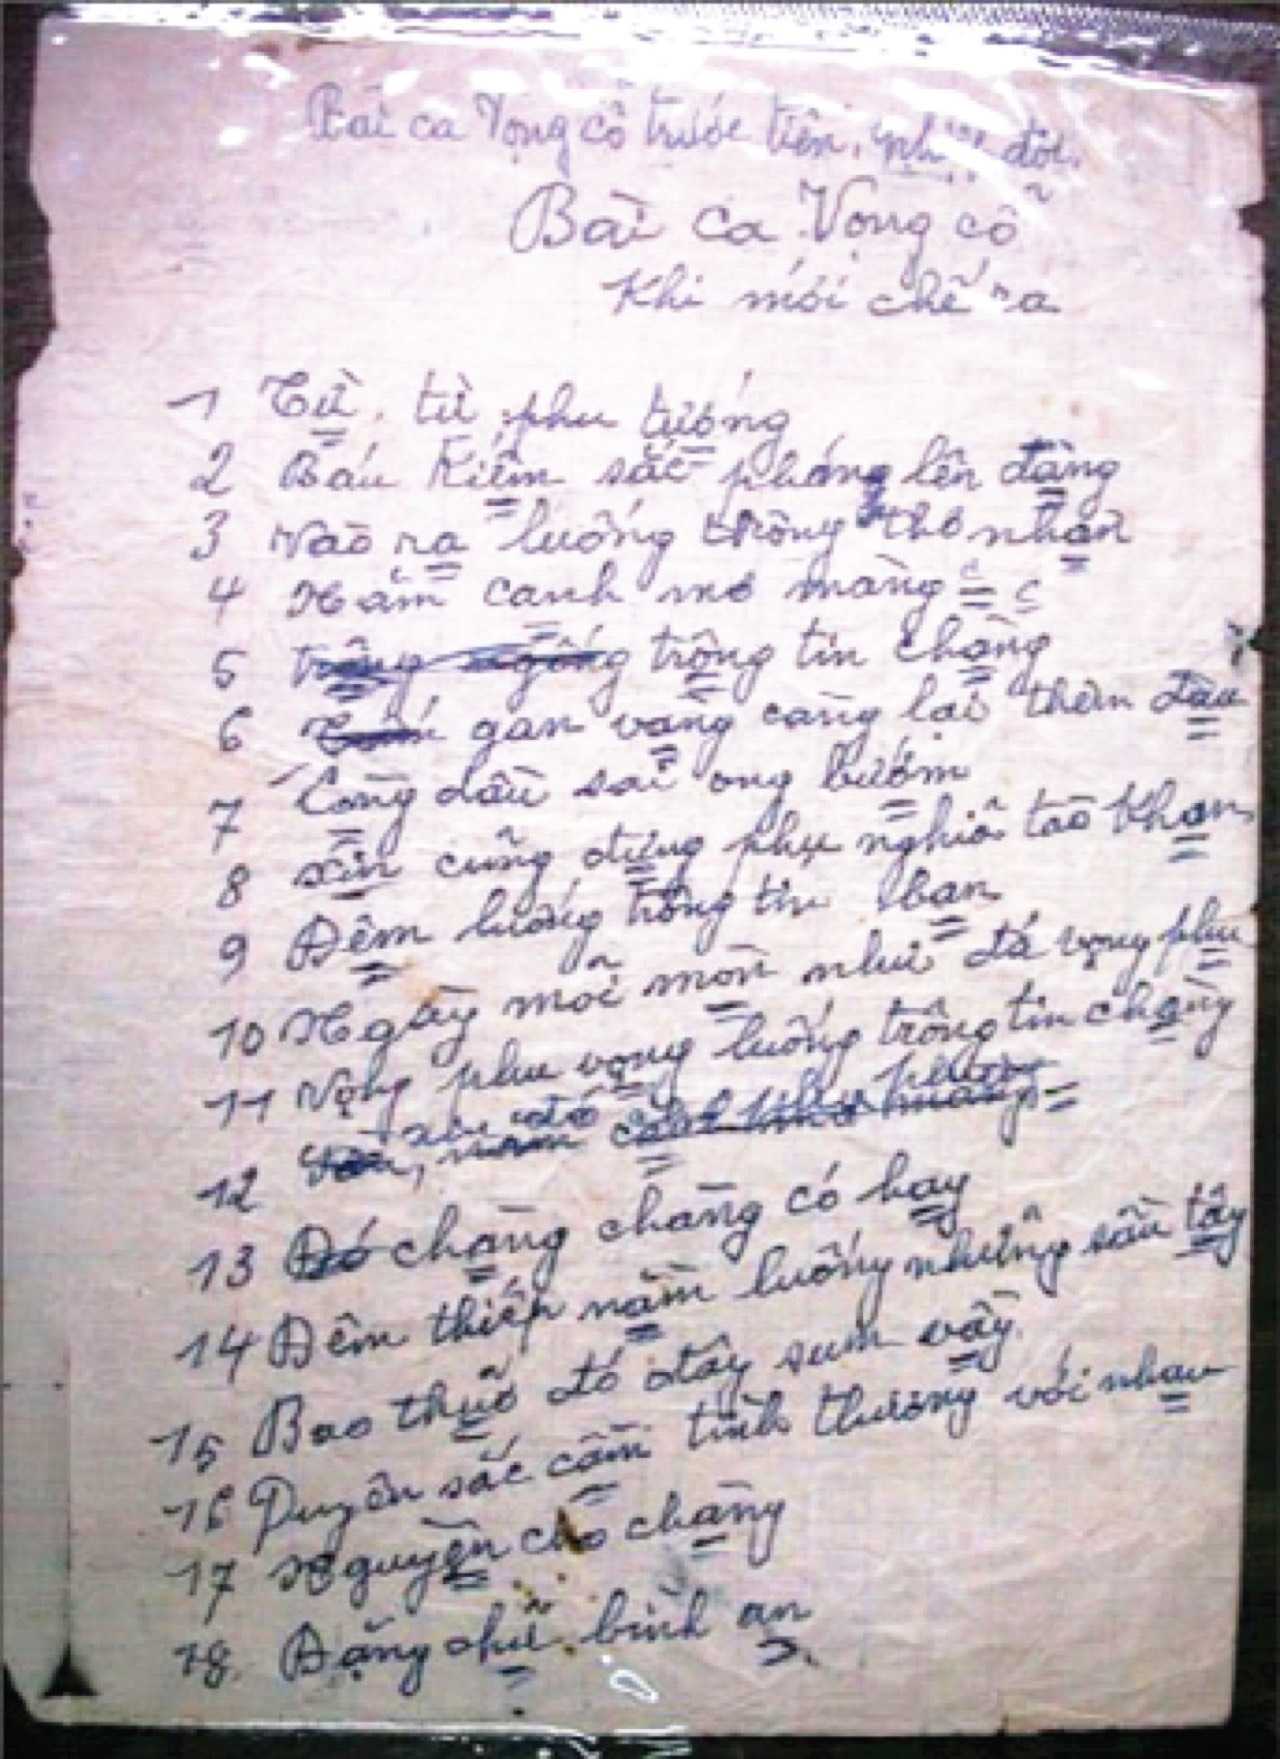 Bài ca Vọng cổ trước tiên, nhịp đôi.
Bài ca Vọng cổ
Khi mới chế ra
1 Từ, từ phu tướng
2 Báu kiếm sắc phóng lên đàng
3 Vào ra luống trông tho nhàn
4 Năm canh mơ màng
5 trông ngóng trông tin chàng
6 gan vàng càng lại thêm đau
7 Còng dầu sai ong bướm
8 xin cũng đừng phụ nghiã tào khan
9 Đêm luống trông tin bạn
10 Ngày mỏi mòn như đá vọng phu
11 Vọng phu vọng luống trông tin chàng
12
13 Đó chàng chàng có hay
14 Đêm thiếp nằm luống những sầu tây
15 Bao thuở đó đây sum vầy
16 Duyên sắc cầm tình thương với nhau
17 Nguyện cho chàng
18. Đặng chữ bình an